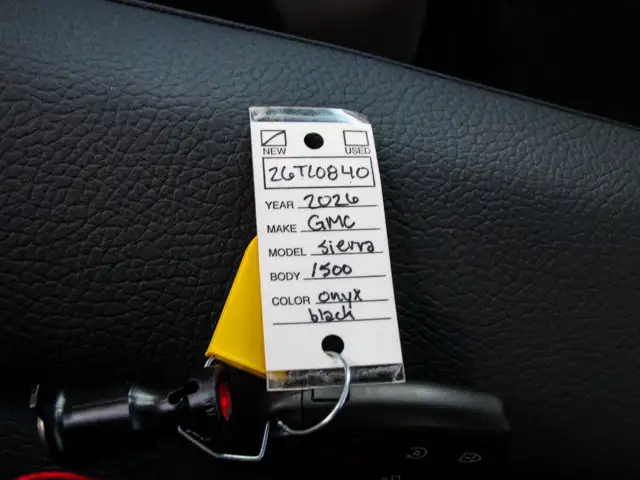 NEW USED
26TL0840
YEAR 2026
MAKE GMC
MODEL Sierra
BODY 1500
COLOR onyx
black